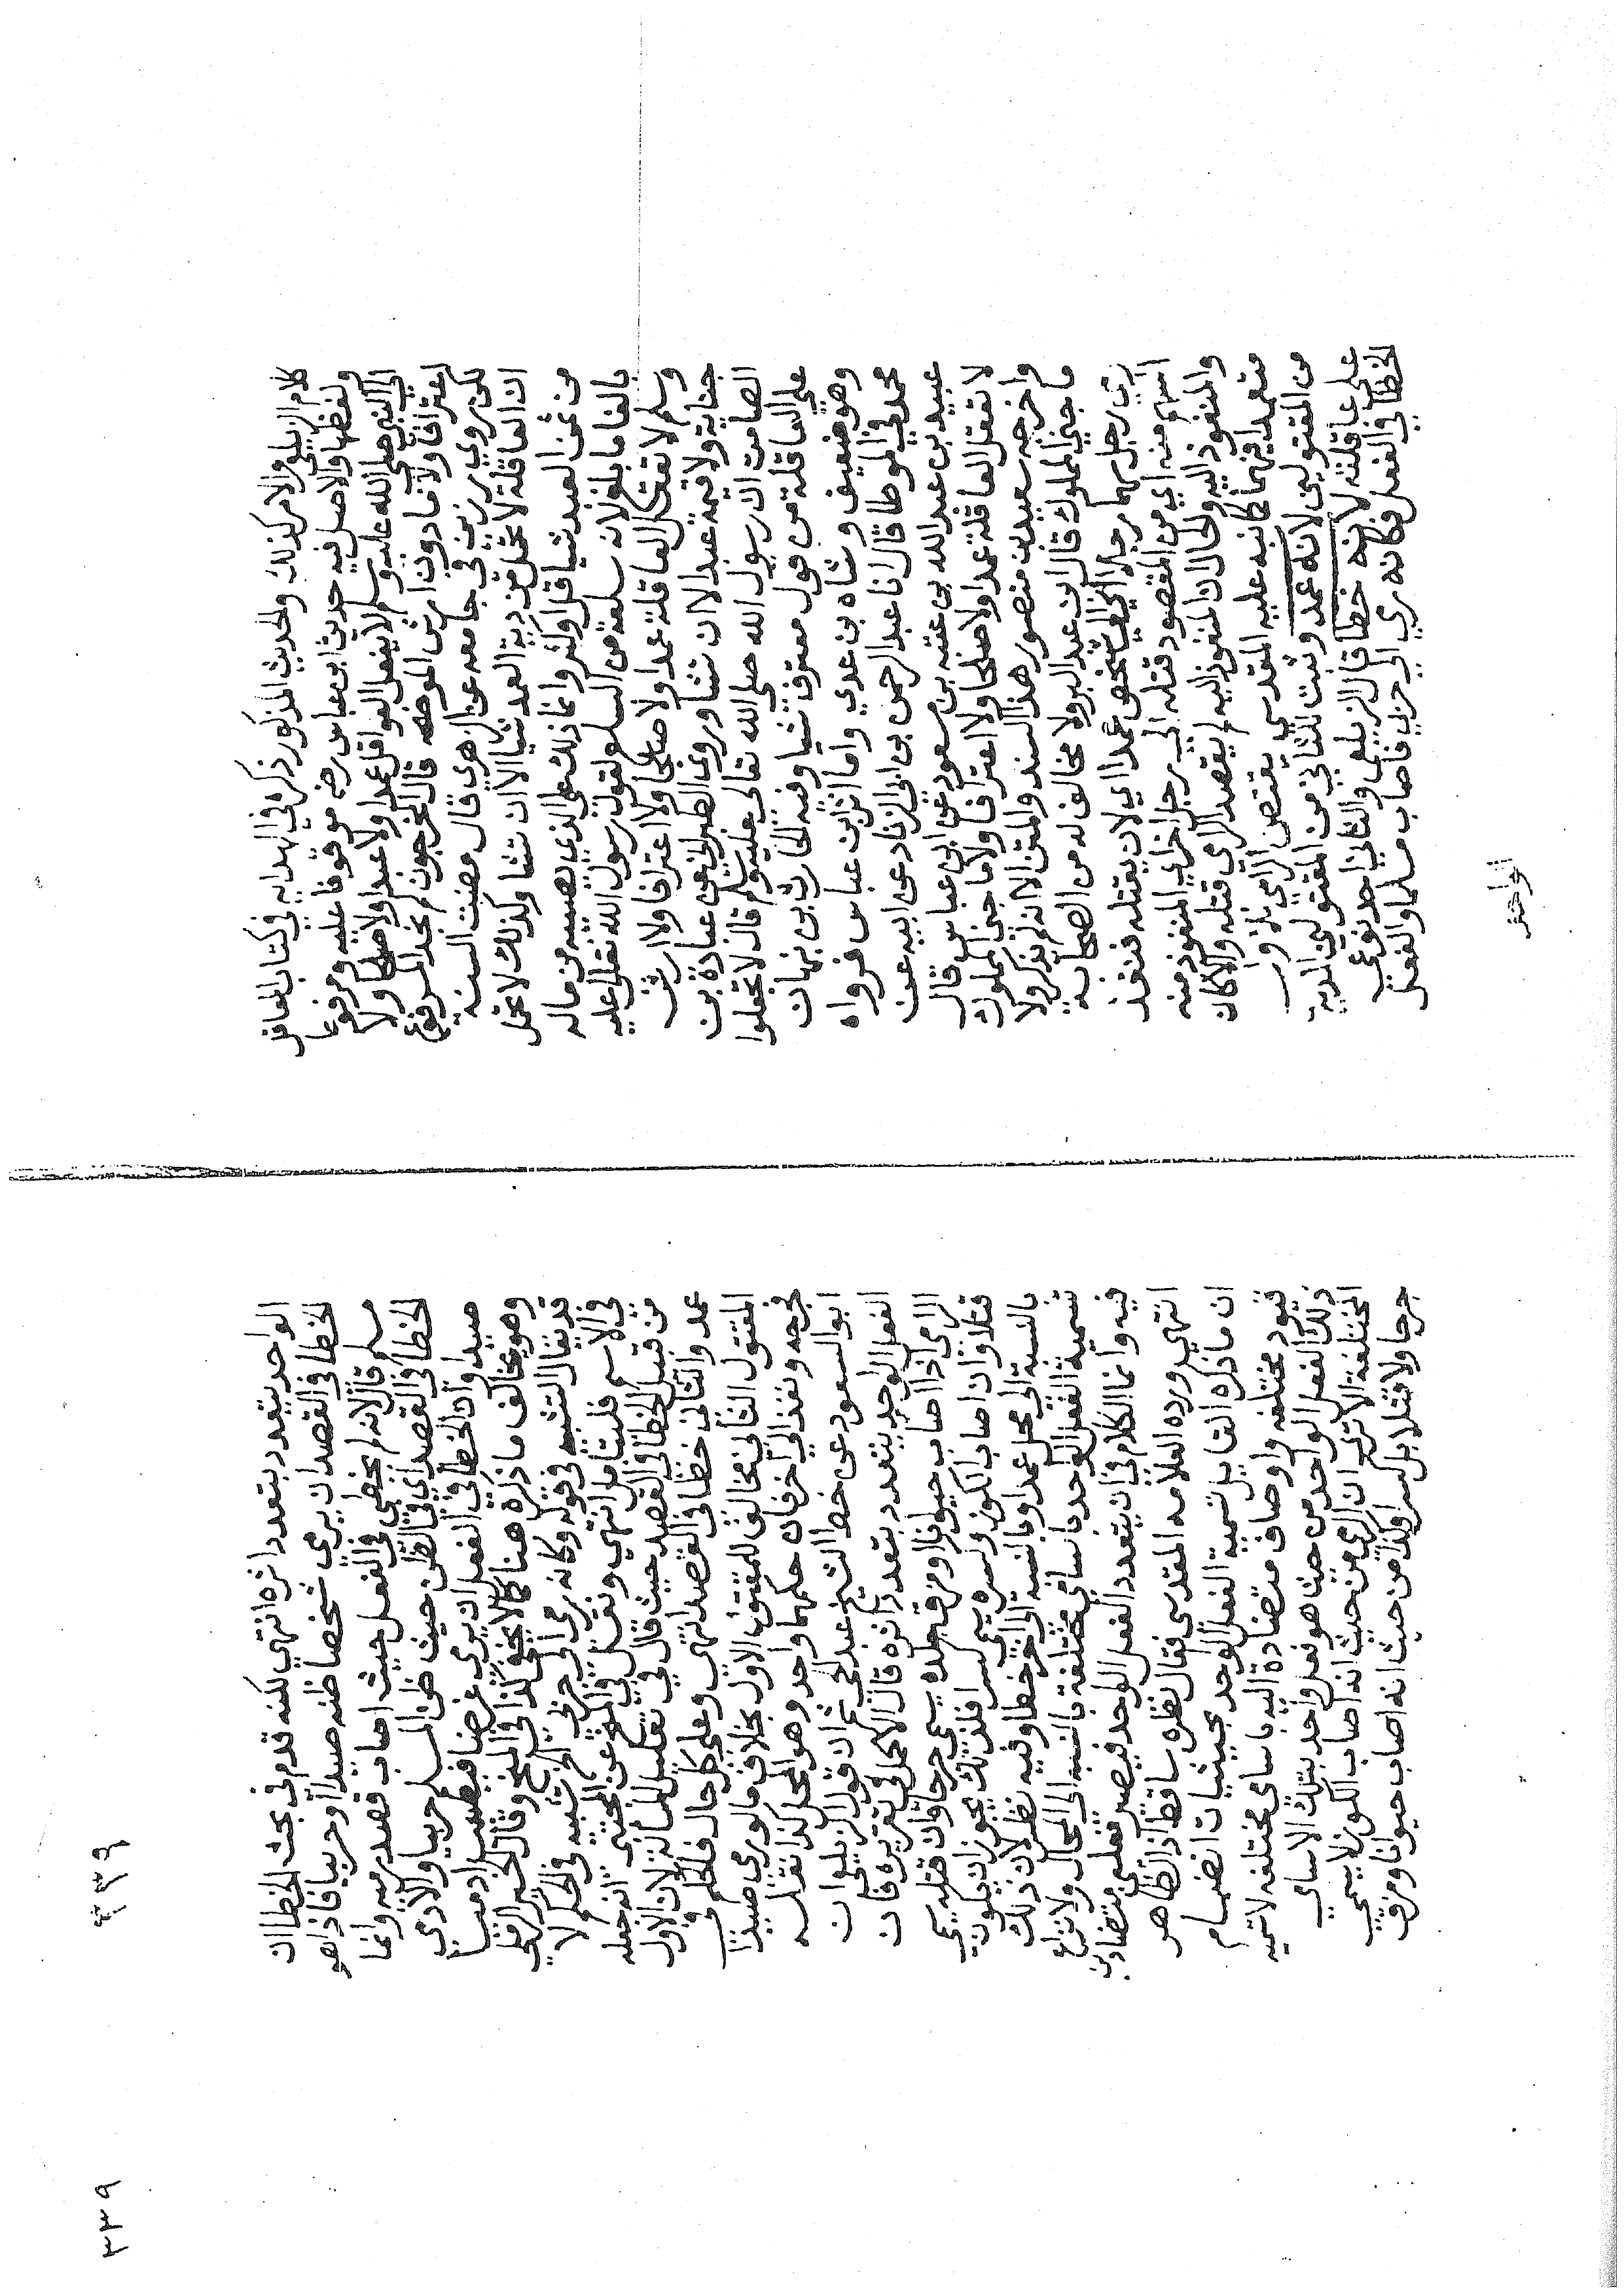 كلام الزيلعي والامر كذلك والحديث المذكور ذكره في الهدايه في كتاب المعاقل
ولفظها والاصل فيه حديث ابن عباس رضه موقوفا عليه ومرفوعا
الى النبي صلى الله عليه وسلم لا يعقل العواقل عمدا ولا عبدا ولا صلحا ولا
اعترافا ولا ما دون ارش الموضحه قال المخرجون لم نجد المرفوع
لكن روي رزين في جامعه عن الزهري قال مضت السنه
ان العاقلة لا تحمل من دية العمد شيا الا ان تشا وكذلك لا تحمل
من ثمن العبد شيا قل او كثر وانما ذلك على الذي يصيبه من ماله
بالغا ما بلغ لانه سلعة من السلع لقول رسول الله صلى الله عليه
وسلم لا تعقل العاقلة عمدا ولا صلحا ولا اعترافا ولا ارش
جناية ولا قيمة عبد الا ان تشا وروى الطبراني عن عبادة بن
الصامت ان رسول الله صلى الله تعالى عليه وسلم قال لا تجعلوا
على العاقلة من قول معترف شيا وفيه الحارث بن نبهان
وهو ضعيف وشاه بن عدي واما اثر ابن عباس فرواه
محمد في الموطا قال انا عبد الرحمن بن ابي الزناد عن ابيه عن
عبيد بن عبد الله بن عتبه بن مسعود عن ابن عباس قال
لا تعقل العاقلة عمدا ولا صلحا ولا اعترافا ولا ما جنى المملوك
واخرجه سعيد بن منصور هذا السند والمتن الا انه لم يذكر ولا
ما جنى المملوك قال ابن عبد البر ولا مخالف له من الصحابة
رمى رجل سهما رجلا اي الى شخص عمدا اي لان يقتله فنفذ
السهم منه اي من المقصود قتله الى رجل اخر اي المنفوذ منه
والمنفوذ اليه والحال ان المنفوذ اليه لم يقصد الرامي قتله والا كان
متعمدا فيهما كما نبه عليه المقدسي يقتص الرامي للاول
من المقتولين لانه عمد وثبت للثاني من المقتولين الدية
على عاقلته لانه خطا قال الزيلعي والثاني احد نوعي
الخطا في الفعل فكانه رمى الى حربي فاصاب مسلما والفعل
الواحد
الواحد يتعدد بتعدد اثره انتهي لكنه قدم في بحث الخطا ان
الخطا في القصد ان يرمي شخصا ظنه صيدا او حربيا فاذا هو
مسلم قال لانه لم يخطي في الفعل حيث اصاب قصد رميه وانما
الخطا في القصد اي في الظن حيث ظن المسلم حربيا والادمي
صيدا وان الخطا في الفعل ان يرمي غرضا فيصيب ادميا
وهو يخالف ما ذكره هنا كما لا يخفى كذا في المنح وقال الخير الرملي
قد يقال التشبيه في قوله وكانه رمى الى حربي الخ تشبيه في الحكم لا
في الاسم فليتامل انتهي ونقل في عن المجتبى انه جعله
من قبيل الخطا في القصد حيث قال في تعليل المسالة لان الاول
عمد والثاني خطا في القصد انتهى وعلى كل حال فالحكم في
المقتول الثاني مخالف للمقتول الاول بخلاف ما لو رمى صيدا
فجرحه ونفذ الى اخر فان حكمهما واحد وهو الحل كذا نقله
ابو السعود عن خط الشيخ عبد الحي ثم ان قول الزيلعي ان
الفعل الواحد يتعدد بتعدد اثره قال الاكمل في تقريره فان
الرمي اذا اصاب حيوانا ومزق جلده يسمى جرحا وان قتله يسمى
قتلا وان اصاب الكوز وكسره يسمى كسرا فلذلك يجوز ان يكون
بالنسبة الى محل عمدا وبالنسبة الى اخر خطا وفيه نظر لان ذلك
تسمية الفعل الواحد باسامي مختلفة بالنسبة الى المحال ولا نزاع
فيه وانما الكلام في ان يتعدد الفعل الواحد فيصير فعلين متضادين
انتهي ورده العلامه المقدسي فقال نظره ساقط اذ الظاهر
ان ما ذكره القايل تسمية الفعل الواحد بحيثيات انضمام
قيود مختلفه واوصاف متضادة اليه باسامى مختلفه لا تسميه
ذلك الفعل الواحد من حيث هو فعل واحد بتلك الاسامي
المختلفة الا ترى ان الرمي من حيث انه اصاب الكوز لا يسمى
جرحا ولا قتلا بل كسرا وكذا من حيث انه اصاب حيوانا ومزق
٣٣٩